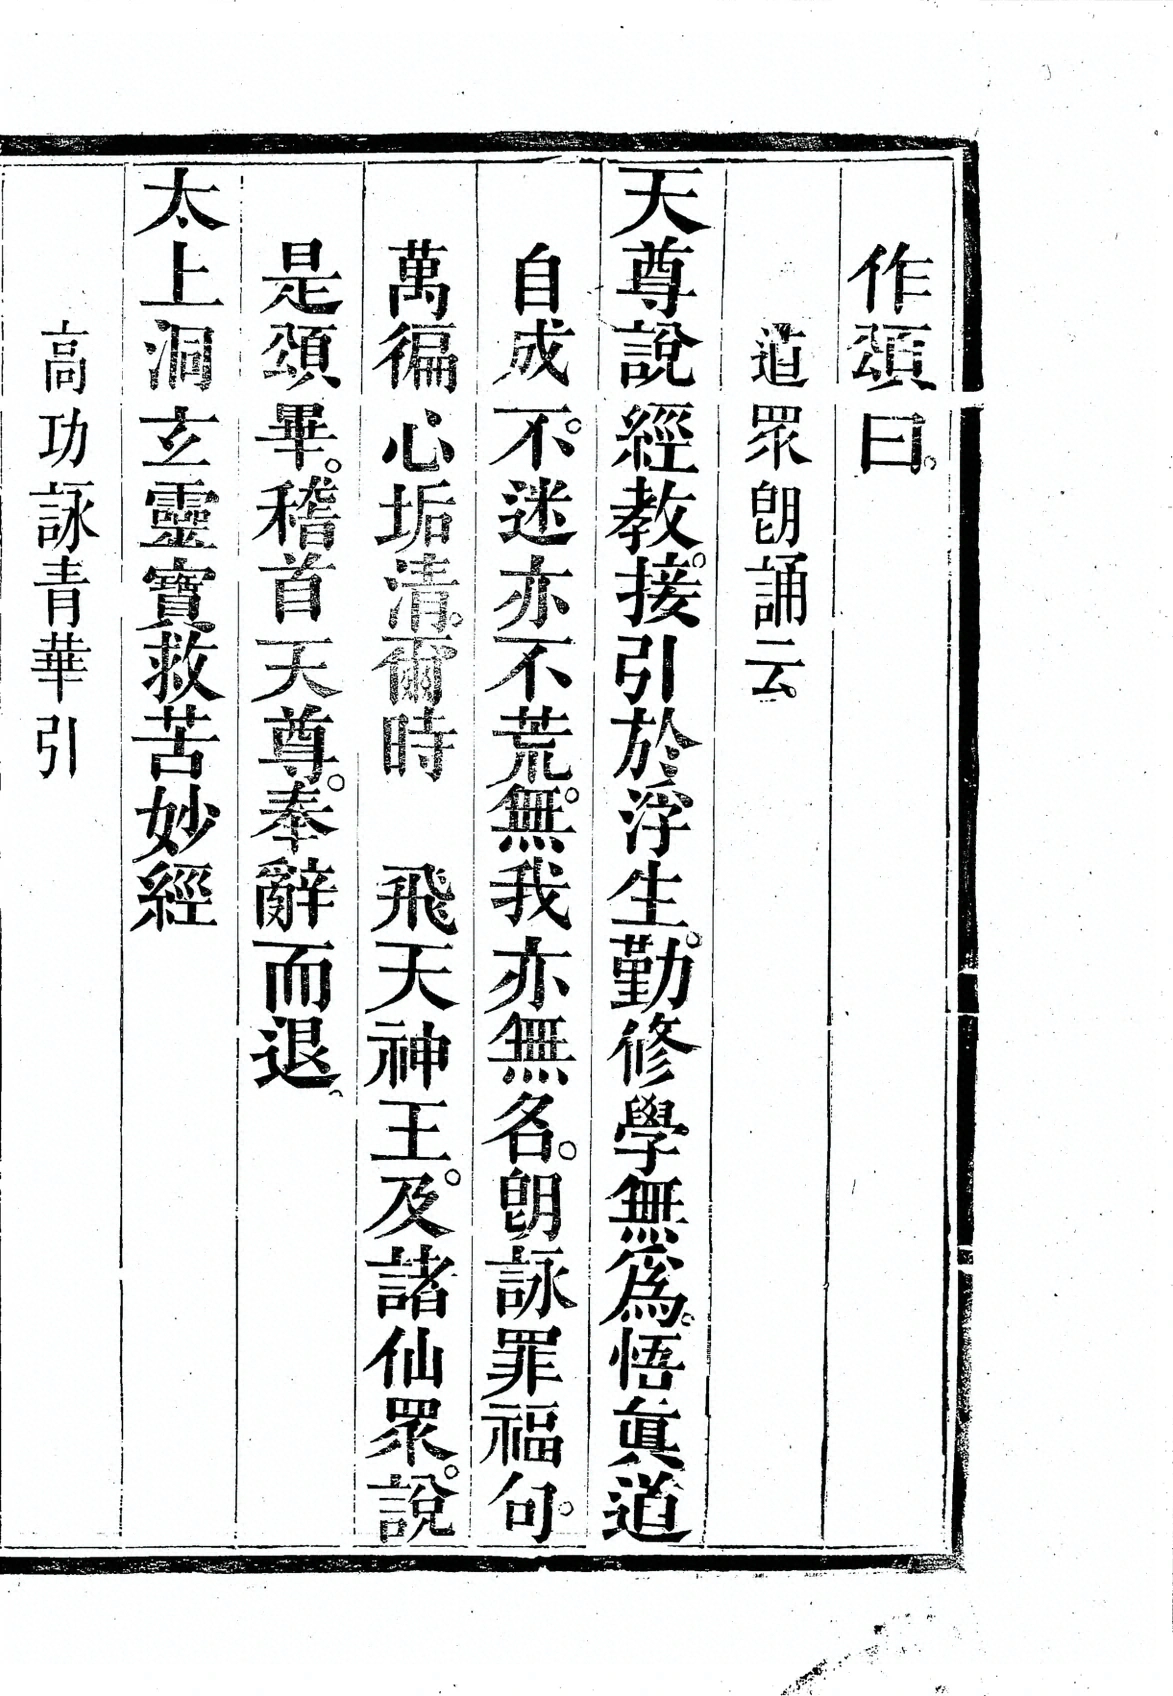 作頌曰。
道眾朗誦云。
天尊說經教。接引於浮生。勤修學無爲。悟眞道
自成。不迷亦不荒。無我亦無名。朗詠罪福句。
萬徧心垢清。爾時　飛天神王。及諸仙眾。說
是頌畢。稽首天尊。奉辭而退。
太上洞玄靈寶救苦妙經
高功詠青華引